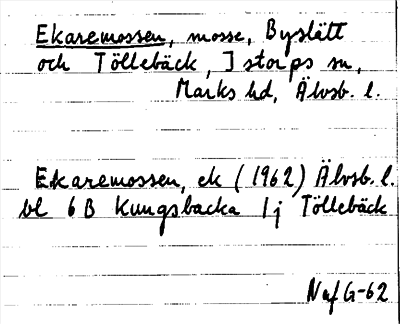 Ekaremossen, mosse, Byslätt
och Töllebäck, Istorps sn,
Marks hd, Älvsb. l.
Ekaremossen, ek (1962) Älvsb. l.
bl 6B Kungsbacka 1j Töllebäck
NafG-62